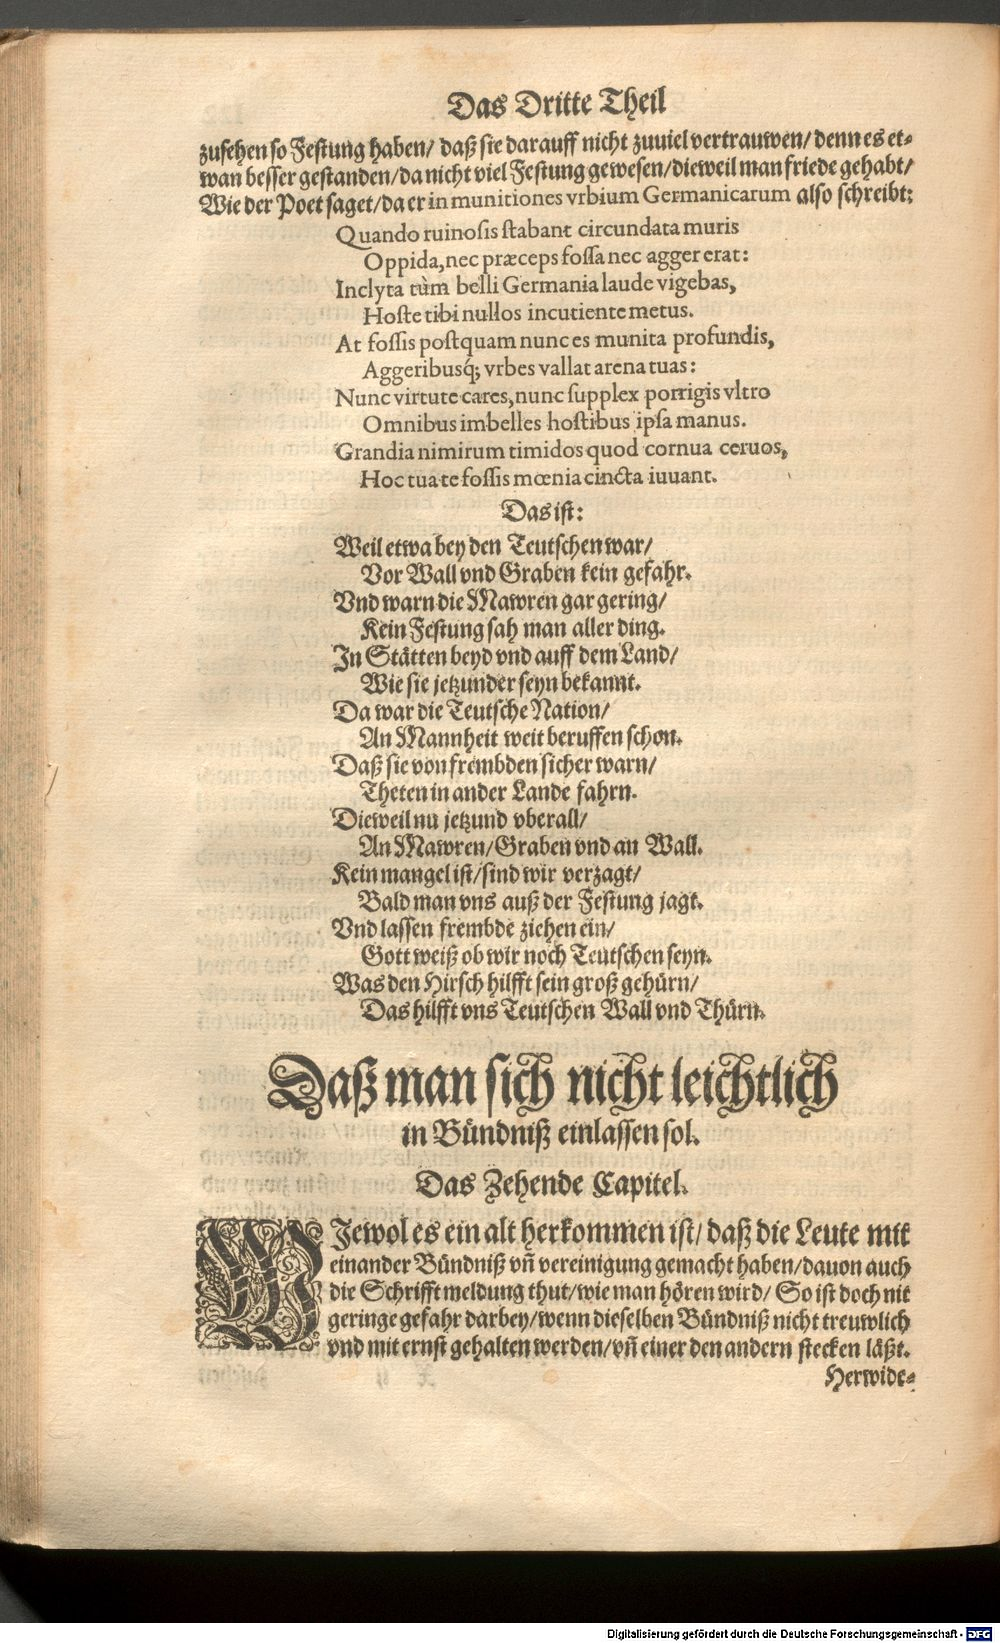 Das Dritte Theil
zusehen so Festung haben/ daß sie darauff nicht zuuiel vertrauwen/ denn es et-
wan besser gestanden/ da nicht viel Festung gewesen/ dieweil man friede gehabt/
Wie der Poet saget/ da er in munitiones vrbium Germanicarum also schreibt:
Quando ruinosis stabant circundata muris
Oppida, nec præceps fossa nec agger erat:
Inclyta tùm belli Germania laude vigebas,
Hoste tibi nullos incutiente metus.
At fossis postquam nunc es munita profundis,
Aggeribusq́; vrbes vallat arena tuas:
Nunc virtute cares, nunc supplex porrigis vltro
Omnibus imbelles hostibus ipsa manus.
Grandia nimirum timidos quod cornua ceruos,
Hoc tua te fossis mœnia cincta iuuant.
Das ist:
Weil etwa bey den Teutschen war/
Vor Wall vnd Graben kein gefahr.
Vnd warn die Mawren gar gering/
Kein Festung sah man aller ding.
In Stätten beyd vnd auff dem Land/
Wie sie jetzunder seyn bekannt.
Da war die Teutsche Nation/
An Mannheit weit beruffen schon.
Daß sie von frembden sicher warn/
Theten in ander Lande fahrn.
Dieweil nu jetzund vberall/
An Mawren/ Graben vnd an Wall.
Kein mangel ist/ sind wir verzagt/
Bald man vns auß der Festung jagt.
Vnd lassen frembde ziehen ein/
Gott weiß ob wir noch Teutschen seyn.
Was den Hirsch hilfft sein groß gehürn/
Das hilfft vns Teutschen Wall vnd Thürn.
Daß man sich nicht leichtlich
in Bündniß einlassen sol.
Das Zehende Capitel.
WJewol es ein alt herkommen ist/ daß die Leute mit
einander Bündniß vñ vereinigung gemacht haben/ dauon auch
die Schrifft meldung thut/ wie man hören wird/ So ist doch nit
geringe gefahr darbey/ wenn dieselben Bündniß nicht treuwlich
vnd mit ernst gehalten werden/ vñ einer den andern stecken läßt.
Herwide-
Digitalisierung gefördert durch die Deutsche Forschungsgemeinschaft - DFG